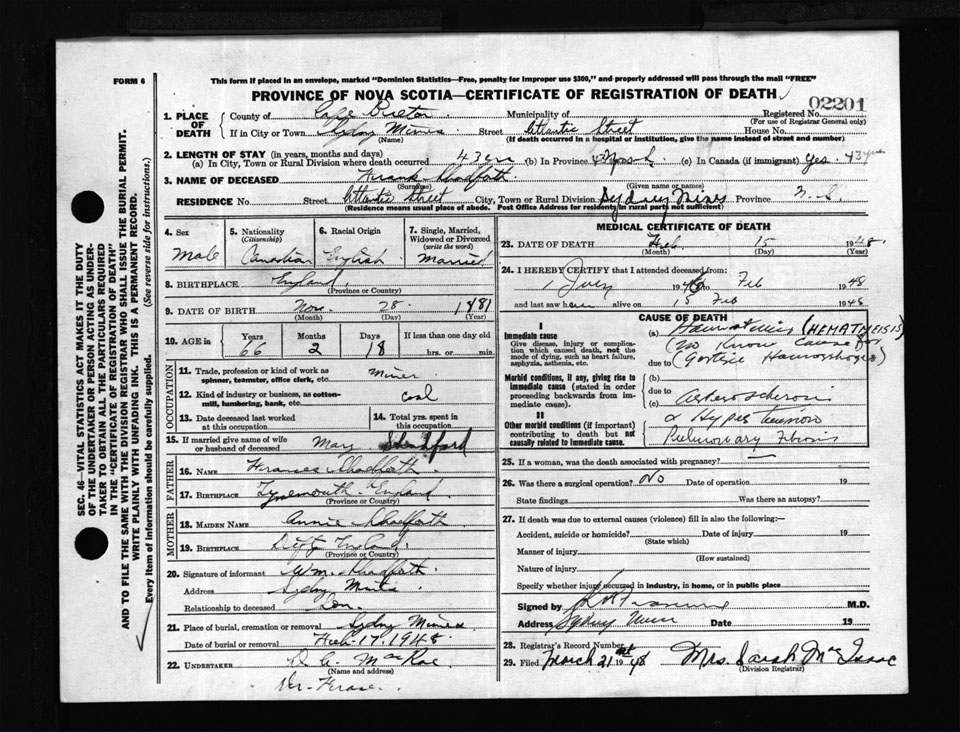 FORM 6
This form if placed in an envelope, marked "Dominion Statistics—Free, penalty for improper use $300," and properly addressed will pass through the mail "FREE"
PROVINCE OF NOVA SCOTIA—CERTIFICATE OF REGISTRATION OF DEATH
02201
1. PLACE OF DEATH
County of Cape Breton Municipality of Registered No.
(For use of Registrar General only)
If in City or Town Sydney Mines Street Atlantic Street House No.
(Name) (If death occurred in a hospital or institution, give the name instead of street and number)
2. LENGTH OF STAY (in years, months and days)
(a) In City, Town or Rural Division where death occurred 43 (b) In Province (c) In Canada (if immigrant) yes
3. NAME OF DECEASED Frank
(Surname) (Given name or names)
RESIDENCE No. Street Atlantic Street City, Town or Rural Division Sydney Mines Province N.S.
(Residence means usual place of abode. Post Office Address for residents in rural parts not sufficient)
4. Sex Male
5. Nationality (Citizenship) Canadian
6. Racial Origin English
7. Single, Married, Widowed or Divorced (write the word) Married
8. BIRTHPLACE England
(Province or Country)
9. DATE OF BIRTH Nov. 28 1881
(Month) (Day) (Year)
10. AGE in Years 66 Months 2 Days 18 If less than one day
hrs. or min.
OCCUPATION
11. Trade, profession or kind of work as spinner, teamster, office clerk, etc. Miner
12. Kind of industry or business, as cotton-mill, lumbering, bank, etc. coal
13. Date deceased last worked at this occupation
14. Total yrs. spent in this occupation
15. If married give name of wife or husband of deceased Mary
FATHER
16. NAME Frances
17. BIRTHPLACE Tynemouth England
(Province or Country)
MOTHER
18. MAIDEN NAME Annie
19. BIRTHPLACE England
(Province or Country)
20. Signature of informant Wm.
Address Sydney Mines
Relationship to deceased Son.
21. Place of burial, cremation or removal Sydney Mines
Date of burial or removal Feb. 17. 1948
22. UNDERTAKER D. A. MacRae
(Name and address)
MEDICAL CERTIFICATE OF DEATH
23. DATE OF DEATH Feb. 15 1948
(Month) (Day) (Year)
24. I HEREBY CERTIFY that I attended deceased from:
194 to Feb 1948
and last saw him alive on 15 Feb 1948
CAUSE OF DEATH
I
Immediate cause
Give disease, injury or complication which caused death, not the mode of dying, such as heart failure, asphyxia, asthenia, etc.
(a) (HEMATMEISIS)
(no known cause for
due to (Gastric Hamorrhages)
Morbid conditions, if any, giving rise to immediate cause (stated in order proceeding backwards from immediate cause).
(b)
due to
(c)
II
Other morbid conditions (if important) contributing to death but not causally related to immediate cause.
& Hypertension
Pulmonary Fibrosis
25. If a woman, was the death associated with pregnancy? —
26. Was there a surgical operation? No Date of operation 19
State findings Was there an autopsy?
27. If death was due to external causes (violence) fill in also the following:—
Accident, suicide or homicide? Date of injury 19
(State which)
Manner of injury
(How sustained)
Nature of injury
Specify whether injury occurred in industry, in home, or in public place
Signed by M.D.
Address Sydney Mines Date 19
28. Registrar's Record Number
29. Filed March 21st 1948 Mrs. Sarah McIsaac
(Division Registrar)
SEC. 46—VITAL STATISTICS ACT MAKES IT THE DUTY
OF THE UNDERTAKER OR PERSON ACTING AS UNDER-
TAKER TO OBTAIN ALL THE PARTICULARS REQUIRED
IN THE "CERTIFICATE OF REGISTRATION OF DEATH"
AND TO FILE THE SAME WITH THE DIVISION REGISTRAR WHO SHALL ISSUE THE BURIAL PERMIT.
WRITE PLAINLY WITH UNFADING INK. THIS IS A PERMANENT RECORD.
Every item of information should be carefully supplied. (See reverse side for instructions.)